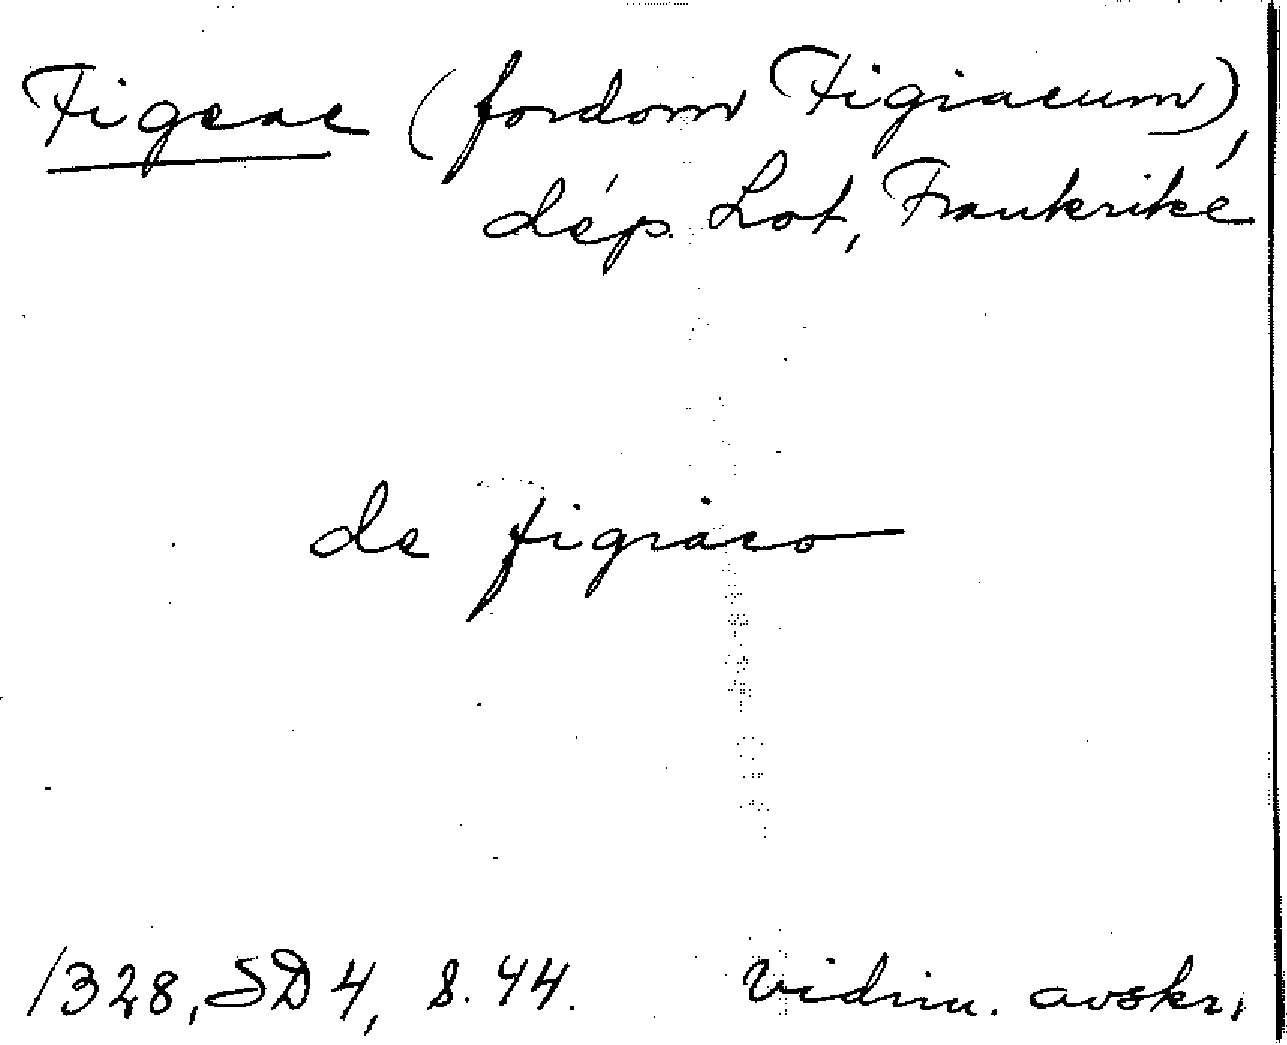 Figeac (fordom Figiacum),
dép. Lot, Frankrike
de figiaco
1328, SD 4, s. 44. Vidim. avskr.